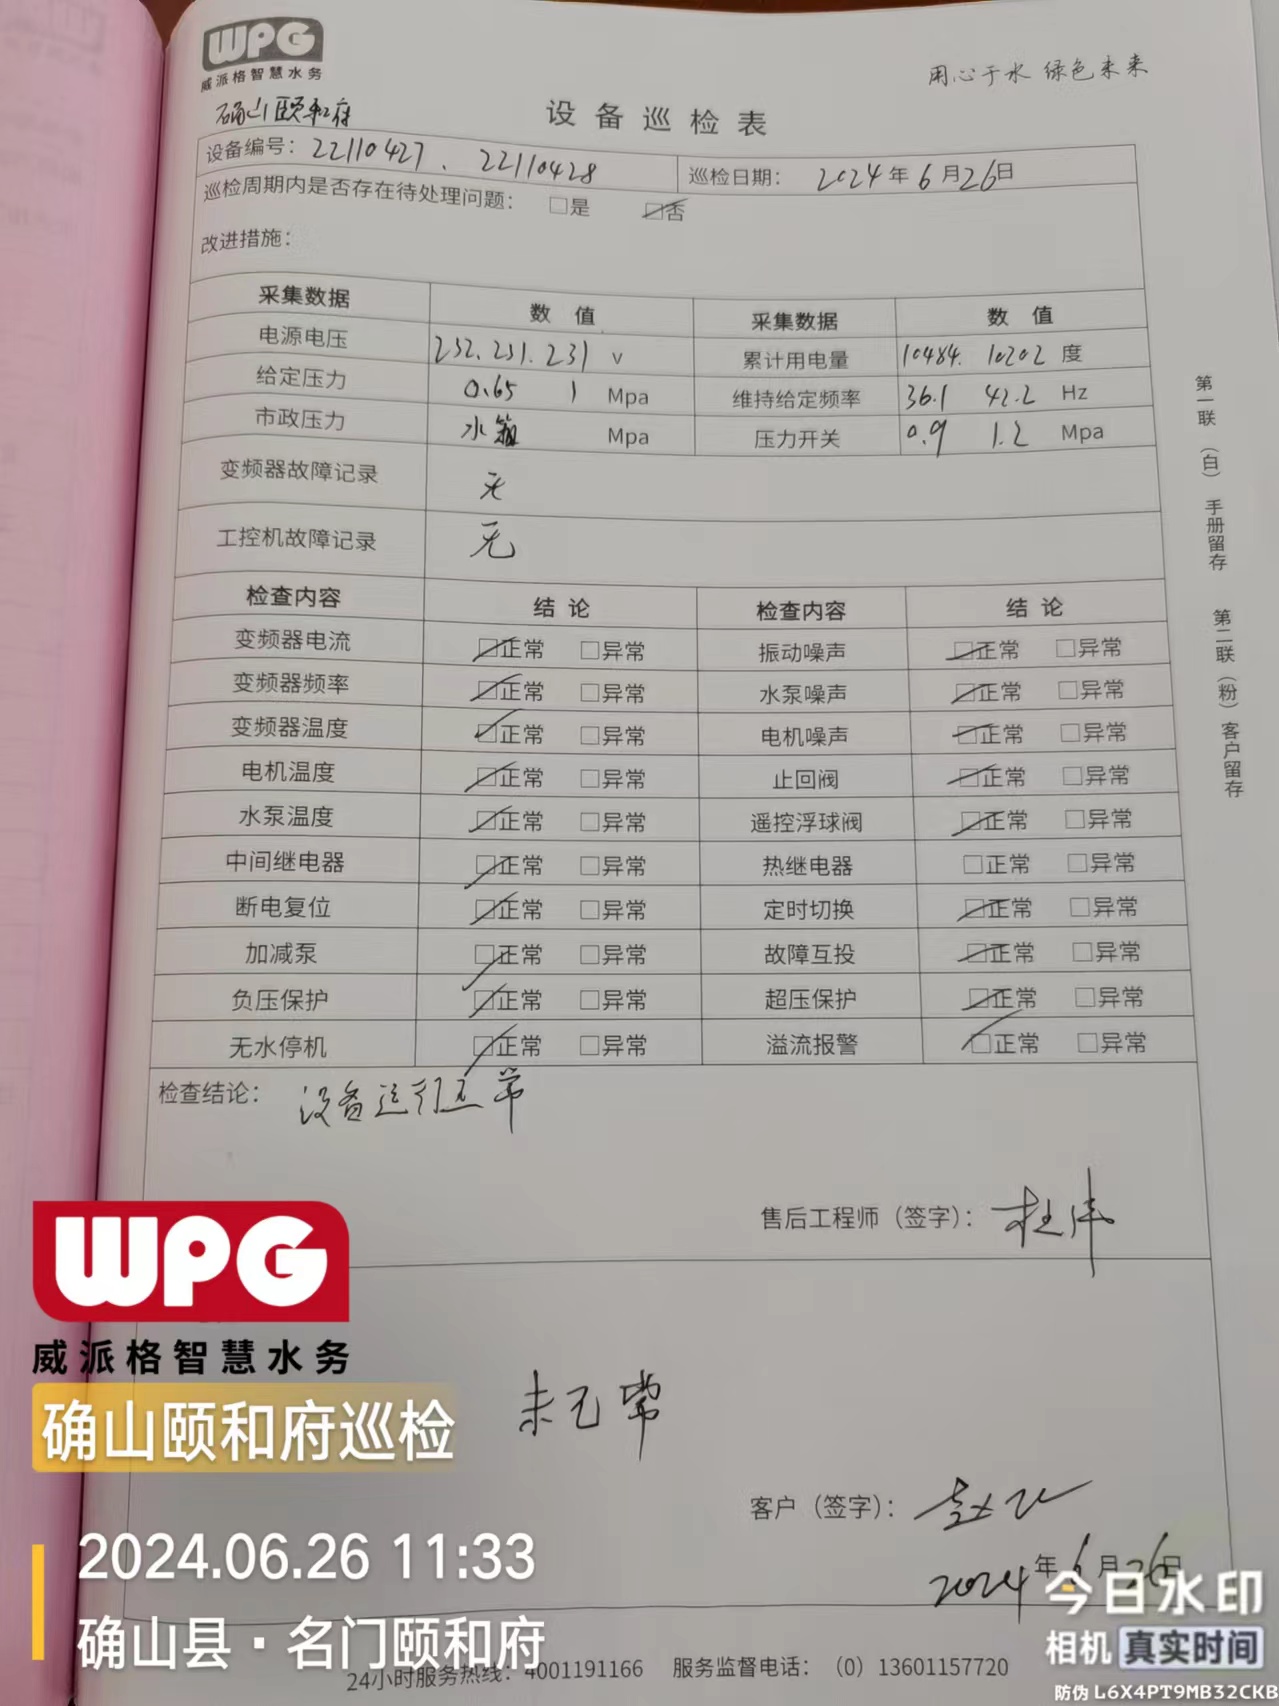 WPG
威派格智慧水务
用心于水 绿色未来
确山颐和府
设备巡检表
设备编号：22110427、22110428
巡检日期： 2024年6月26日
巡检周期内是否存在待处理问题： □是 ☑否
改进措施：
采集数据 数值 采集数据 数值
电源电压 232.231.231 V 累计用电量 10484. 10202 度
给定压力 0.65 1 Mpa 维持给定频率 36.1 42.2 Hz
市政压力 水箱 Mpa 压力开关 0.9 1.2 Mpa
变频器故障记录 无
工控机故障记录 无
检查内容 结论 检查内容 结论
变频器电流 ☑正常 □异常 振动噪声 ☑正常 □异常
变频器频率 ☑正常 □异常 水泵噪声 ☑正常 □异常
变频器温度 ☑正常 □异常 电机噪声 ☑正常 □异常
电机温度 ☑正常 □异常 止回阀 ☑正常 □异常
水泵温度 ☑正常 □异常 遥控浮球阀 ☑正常 □异常
中间继电器 ☑正常 □异常 热继电器 □正常 □异常
断电复位 ☑正常 □异常 定时切换 ☑正常 □异常
加减泵 ☑正常 □异常 故障互投 ☑正常 □异常
负压保护 ☑正常 □异常 超压保护 ☑正常 □异常
无水停机 ☑正常 □异常 溢流报警 ☑正常 □异常
检查结论： 设备运行正常
售后工程师（签字）：
客户（签字）：
2024年6月26日
24小时服务热线：4001191166 服务监督电话：（0）13601157720
第一联（白）手册留存 第二联（粉）客户留存
WPG
威派格智慧水务
确山颐和府巡检
2024.06.26 11:33
确山县·名门颐和府
今日水印
相机 真实时间
防伪 L6X4PT9MB32CKB